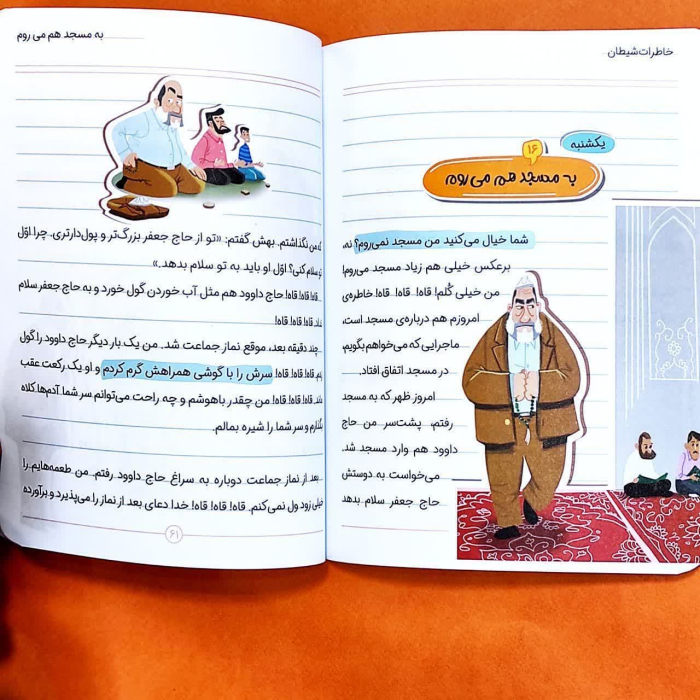 خاطرات شیطان
یکشنبه
۱۶
به مسجد هم می روم
شما خیال می‌کنید من مسجد نمی‌روم؟ نه،
برعکس خیلی هم زیاد مسجد می‌روم!
من خیلی کُلم! قاه! قاه! قاه! خاطره‌ی
امروزم هم درباره‌ی مسجد است،
ماجرایی که می‌خواهم بگویم،
در مسجد اتفاق افتاد.
امروز ظهر که به مسجد
رفتم، پشت‌سر من حاج
داوود هم وارد مسجد شد.
می‌خواست به دوستش
حاج جعفر سلام بدهد
به مسجد هم می روم
که من نگذاشتم. بهش گفتم: «تو از حاج جعفر بزرگ‌تر و پول‌دارتری. چرا اوّل
تو سلام کنی؟ اوّل او باید به تو سلام بدهد.»
قاه! قاه! قاه! حاج داوود هم مثل آب خوردن گول خورد و به حاج جعفر سلام
نداد. قاه! قاه! قاه!
چند دقیقه بعد، موقع نماز جماعت شد. من یک بار دیگر حاج داوود را گول
زدم. قاه! قاه! قاه! سرش را با گوشی همراهش گرم کردم و او یک رکعت عقب
افتاد. قاه! قاه! قاه! من چقدر باهوشم و چه راحت می‌توانم سر شما آدم‌ها کلاه
بگذارم و سر شما را شیره بمالم.
بعد از نماز جماعت دوباره به سراغ حاج داوود رفتم. من طعمه‌هایم را
خیلی زود ول نمی‌کنم. قاه! قاه! قاه! خدا دعای بعد از نماز را می‌پذیرد و برآورده
۶۱